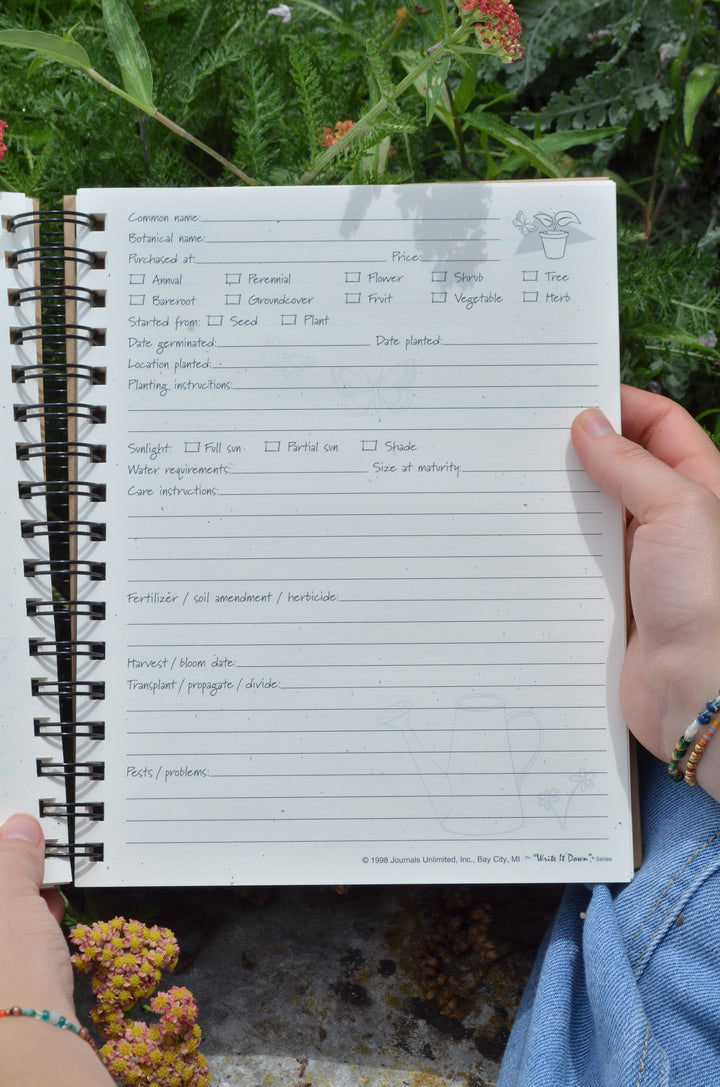 Common name:
Botanical name:
Purchased at: Price:
Annual Perennial Flower Shrub Tree
Bareroot Groundcover Fruit Vegetable Herb
Started from: Seed Plant
Date germinated: Date planted:
Location planted:
Planting instructions:
Sunlight: Full sun Partial sun Shade
Water requirements: Size at maturity:
Care instructions:
Fertilizer / soil amendment / herbicide:
Harvest / bloom date:
Transplant / propagate / divide:
Pests / problems:
© 1998 Journals Unlimited, Inc., Bay City, MI ™ "Write It Down"® Series